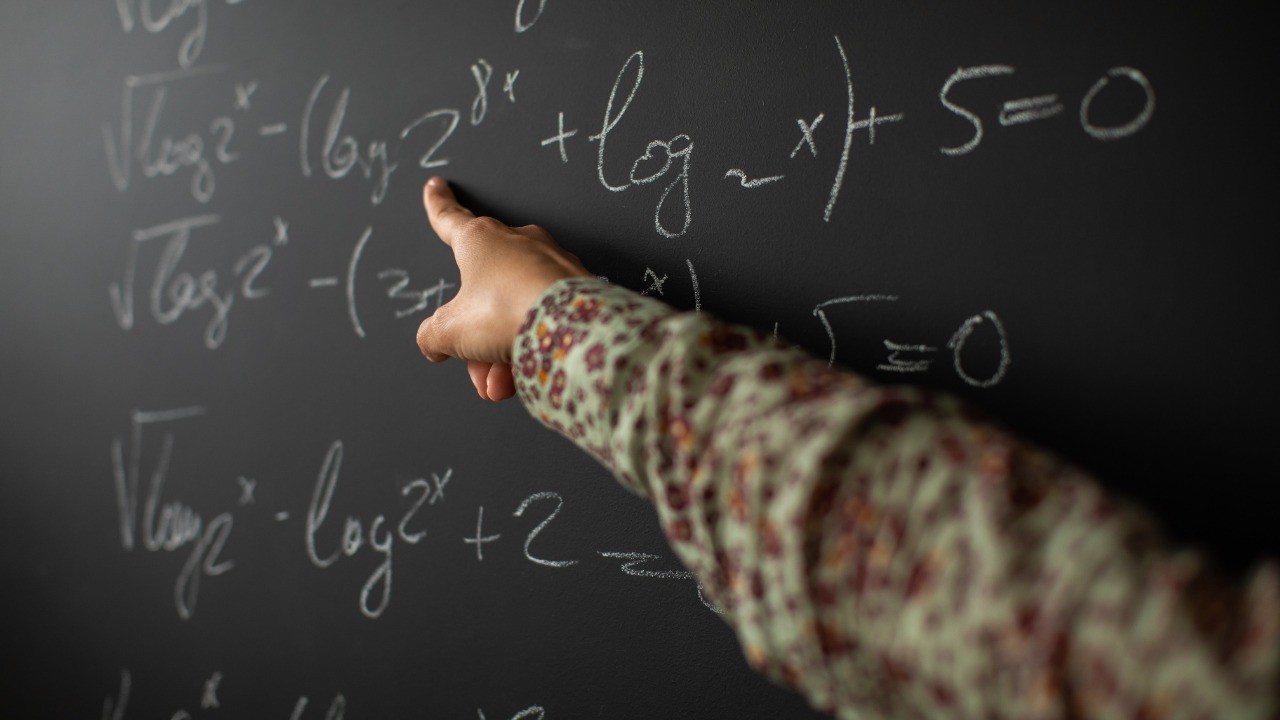 √log₂x - (log₂8x + log₂x) + 5 = 0
√log₂x - (3 + x) 5 = 0
√log₂x - log₂x + 2 =